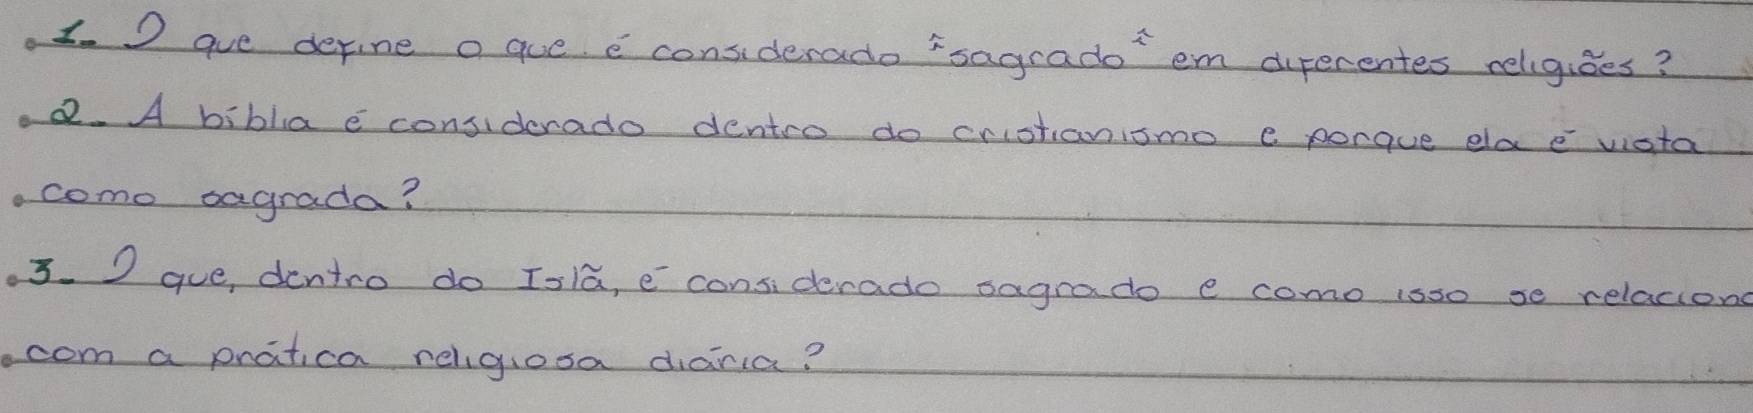 1. O que define o que é considerado "sagrado" em diferentes religiões?
2. A bíblia é considerado dentro do cristianismo e porque ela é vista
como sagrada?
3. O que, dentro do Islã, é considerado sagrado e como isso se relaciona
com a prática religiosa diária?